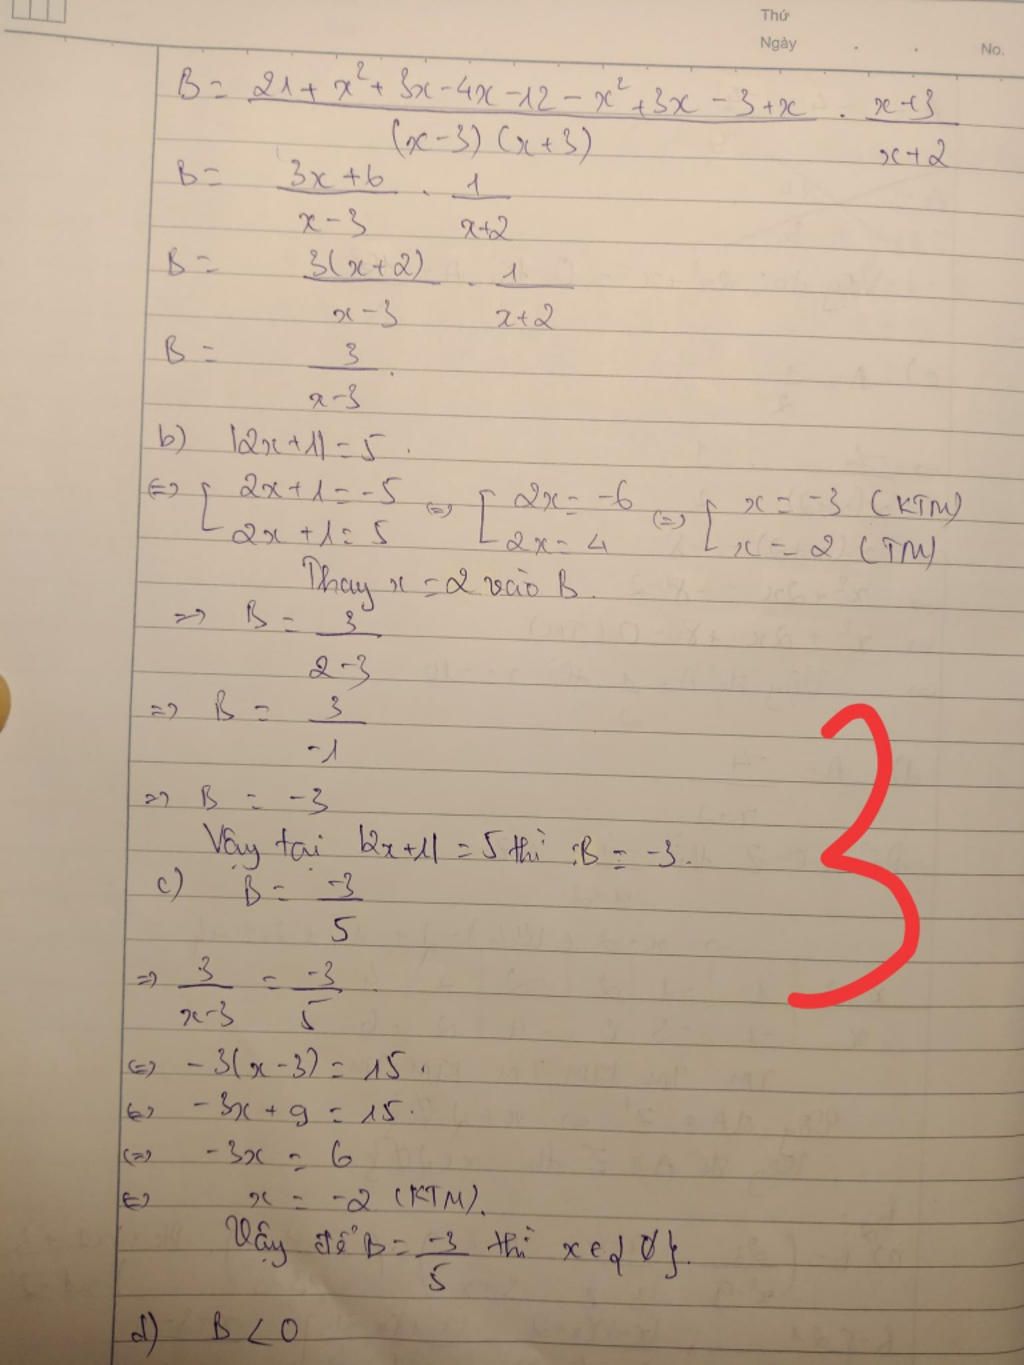 Thứ
Ngày . . No.
B = (21 + x² + 3x - 4x - 12 - x² + 3x - 3 + x)/((x-3)(x+3)) . (x+3)/(x+2)
B = (3x+6)/(x-3) . 1/(x+2)
B = 3(x+2)/(x-3) . 1/(x+2)
B = 3/(x-3) .
b) |2x+1| = 5 .
<=> [ 2x+1 = -5 <=> [ 2x = -6 <=> [ x = -3 (KTM)
2x+1 = 5 2x = 4 x = 2 (TM)
Thay x = 2 vào B.
=> B = 3/(2-3)
=> B = 3/(-1)
=> B = -3
Vậy tại |2x+1| = 5 thì : B = -3.
c) B = -3/5
=> 3/(x-3) = -3/5 .
<=> -3(x-3) = 15 .
<=> -3x + 9 = 15 .
<=> -3x = 6
<=> x = -2 (KTM).
Vậy để B = -3/5 thì x ∈ {∅}.
d) B < 0
3